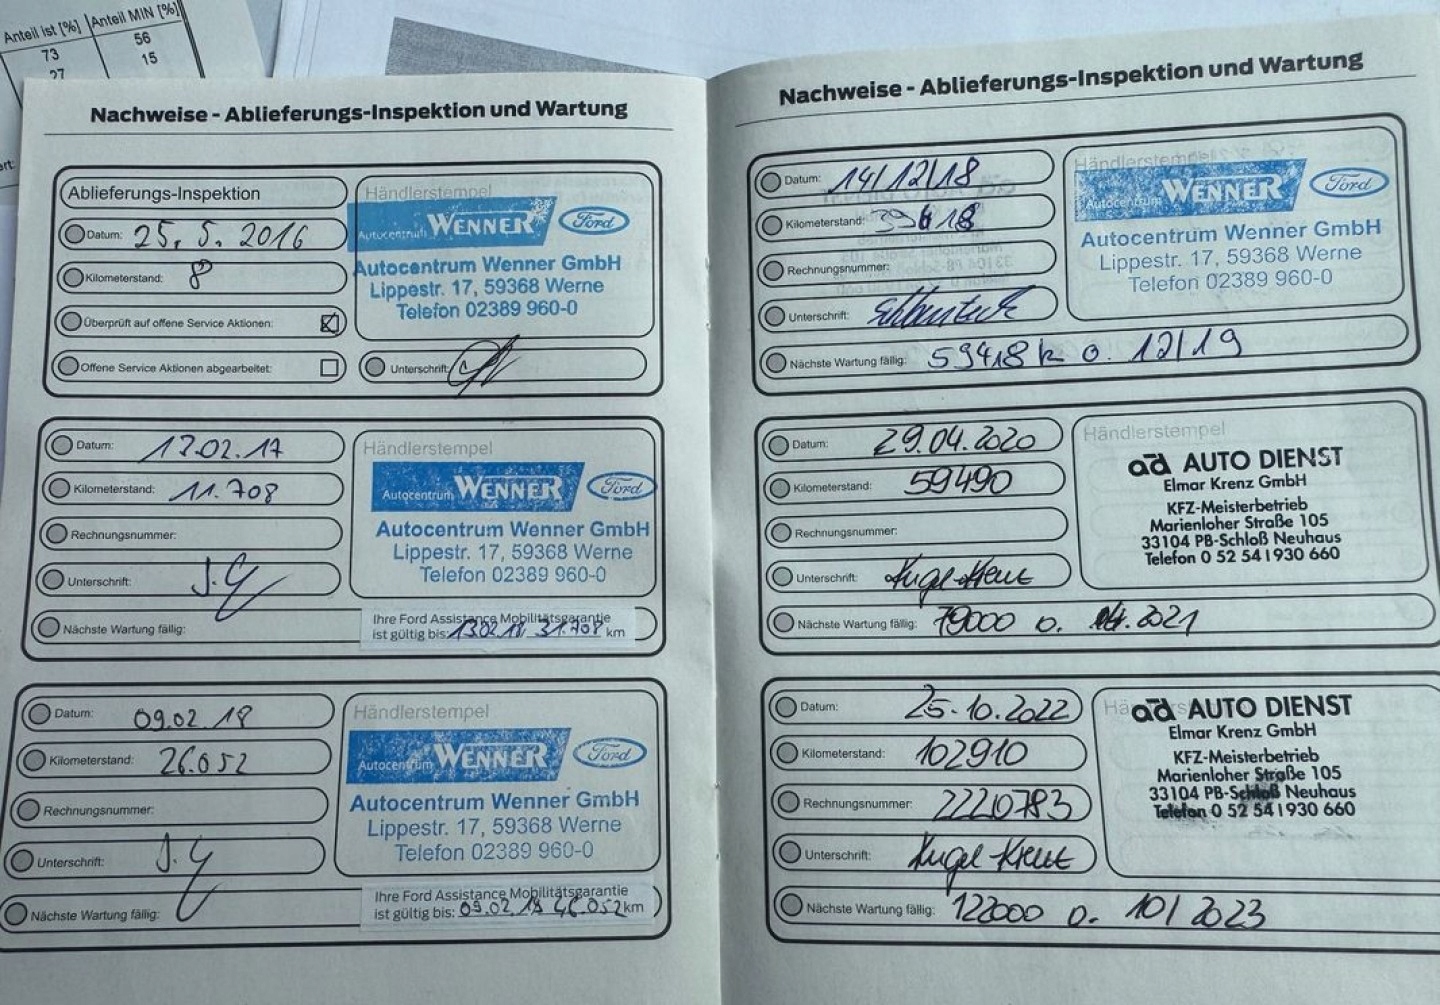 Anteil ist [%] Anteil MIN [%]
73 56
27 15
Nachweise - Ablieferungs-Inspektion und Wartung
Ablieferungs-Inspektion
Datum: 25.5.2016
Kilometerstand: 8
Überprüft auf offene Service Aktionen:
Offene Service Aktionen abgearbeitet:
Händlerstempel
Autocentrum WENNER Ford
Autocentrum Wenner GmbH
Lippestr. 17, 59368 Werne
Telefon 02389 960-0
Unterschrift:
Datum: 13.02.17
Kilometerstand: 11.708
Rechnungsnummer:
Unterschrift:
Nächste Wartung fällig:
Händlerstempel
Autocentrum WENNER Ford
Autocentrum Wenner GmbH
Lippestr. 17, 59368 Werne
Telefon 02389 960-0
Ihre Ford Assistance Mobilitätsgarantie
ist gültig bis: 13.02.18 31.708 km
Datum: 09.02.18
Kilometerstand: 26.052
Rechnungsnummer:
Unterschrift:
Nächste Wartung fällig:
Händlerstempel
Autocentrum WENNER Ford
Autocentrum Wenner GmbH
Lippestr. 17, 59368 Werne
Telefon 02389 960-0
Ihre Ford Assistance Mobilitätsgarantie
ist gültig bis: 09.02.19 46.052 km
Nachweise - Ablieferungs-Inspektion und Wartung
Datum: 14/12/18
Kilometerstand:
Rechnungsnummer:
Unterschrift:
Nächste Wartung fällig: 59418 k o. 12/19
Händlerstempel
Autocentrum WENNER Ford
Autocentrum Wenner GmbH
Lippestr. 17, 59368 Werne
Telefon 02389 960-0
Datum: 29.04.2020
Kilometerstand: 59490
Rechnungsnummer:
Unterschrift: Kugel-Krenz
Nächste Wartung fällig: 79000 o. 04.2021
Händlerstempel
ad AUTO DIENST
Elmar Krenz GmbH
KFZ-Meisterbetrieb
Marienloher Straße 105
33104 PB-Schloß Neuhaus
Telefon 0 52 54 | 930 660
Datum: 25.10.2022
Kilometerstand: 102910
Rechnungsnummer: 2220783
Unterschrift: Kugel-Krenz
Nächste Wartung fällig: 122000 o. 10/2023
ad AUTO DIENST
Elmar Krenz GmbH
KFZ-Meisterbetrieb
Marienloher Straße 105
33104 PB-Schloß Neuhaus
Telefon 0 52 54 | 930 660